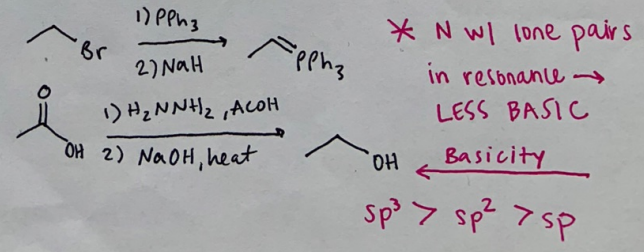 1) PPh3
Br
2) NaH
PPh3
O
OH
1) H2NNH2, AcOH
2) NaOH, heat
OH
* N w/ lone pairs
in resonance →
LESS BASIC
Basicity
sp³ > sp² > sp